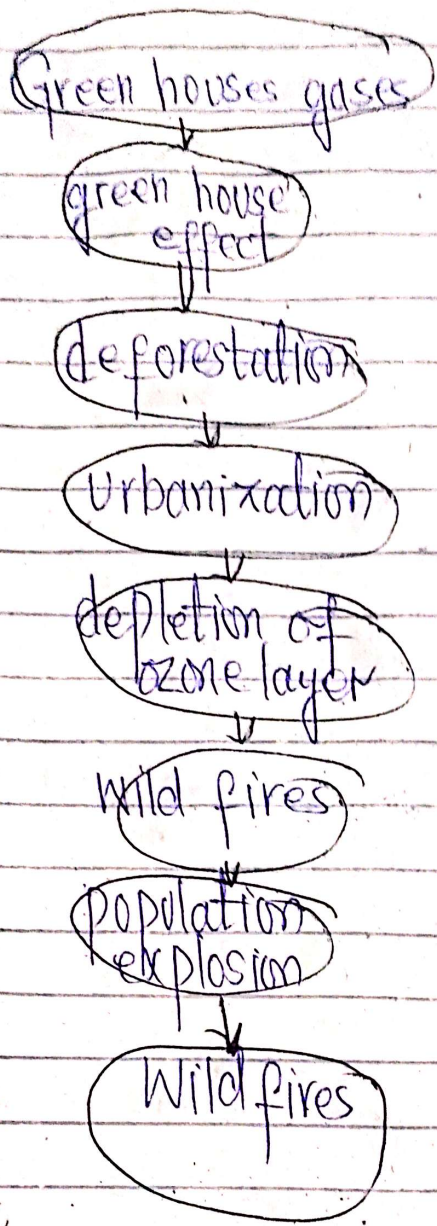 Green houses gases
green house
effect
deforestation
Urbanization
depletion of
ozone layer
Wild fires
population
explosion
Wild fires